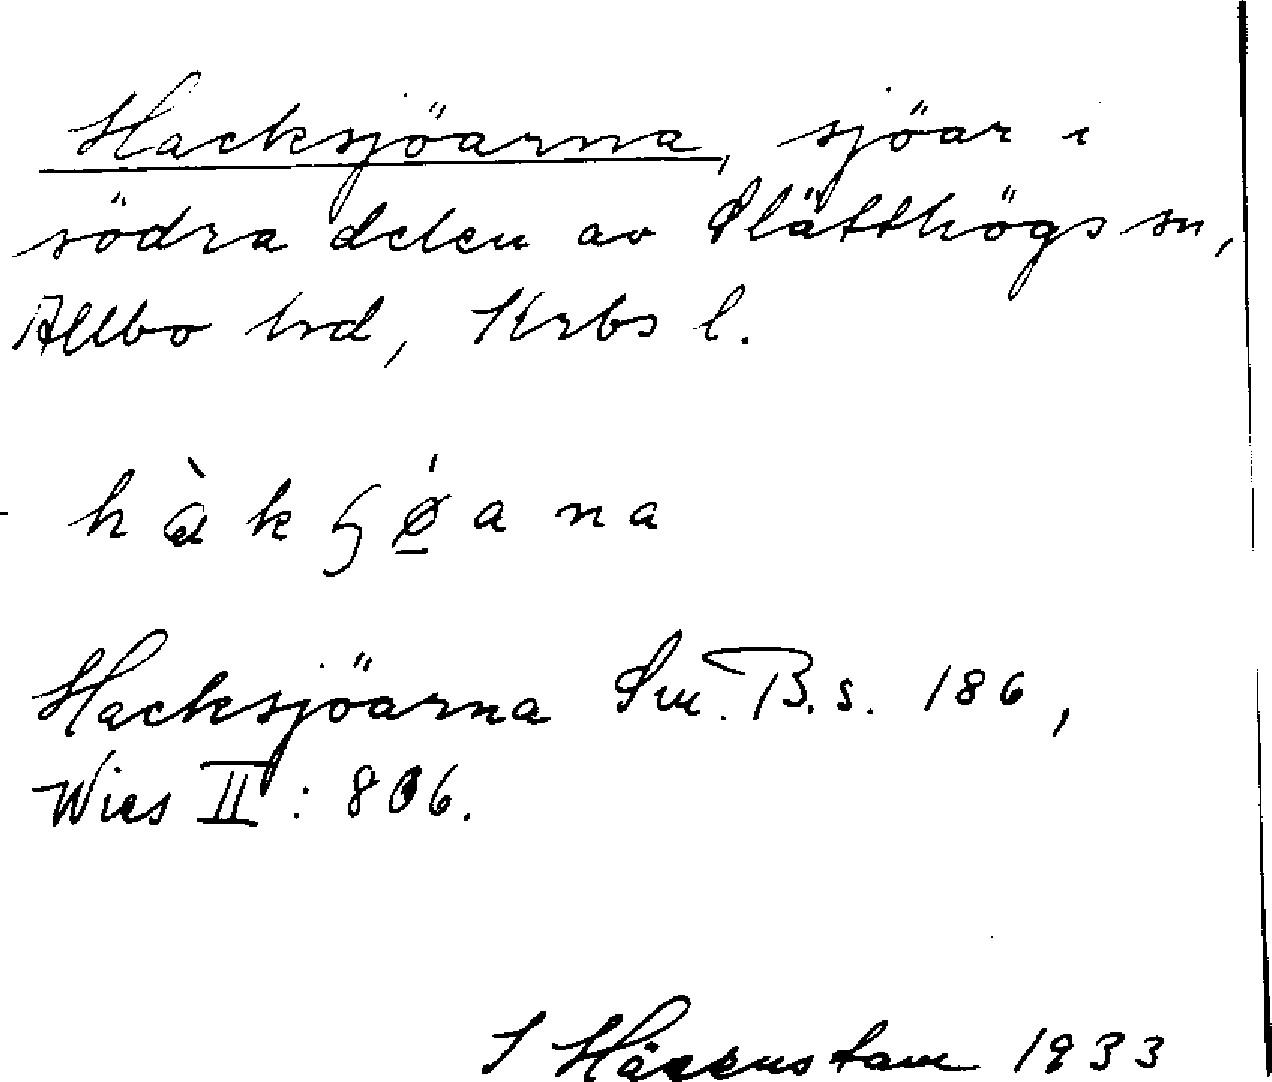 Hacksjöarna, sjöar i
södra delen av Slätthögs sn,
Allbo hd, Krbs l.
Hacksjöarna Sm. B. s. 186,
Wies II: 806.
1933